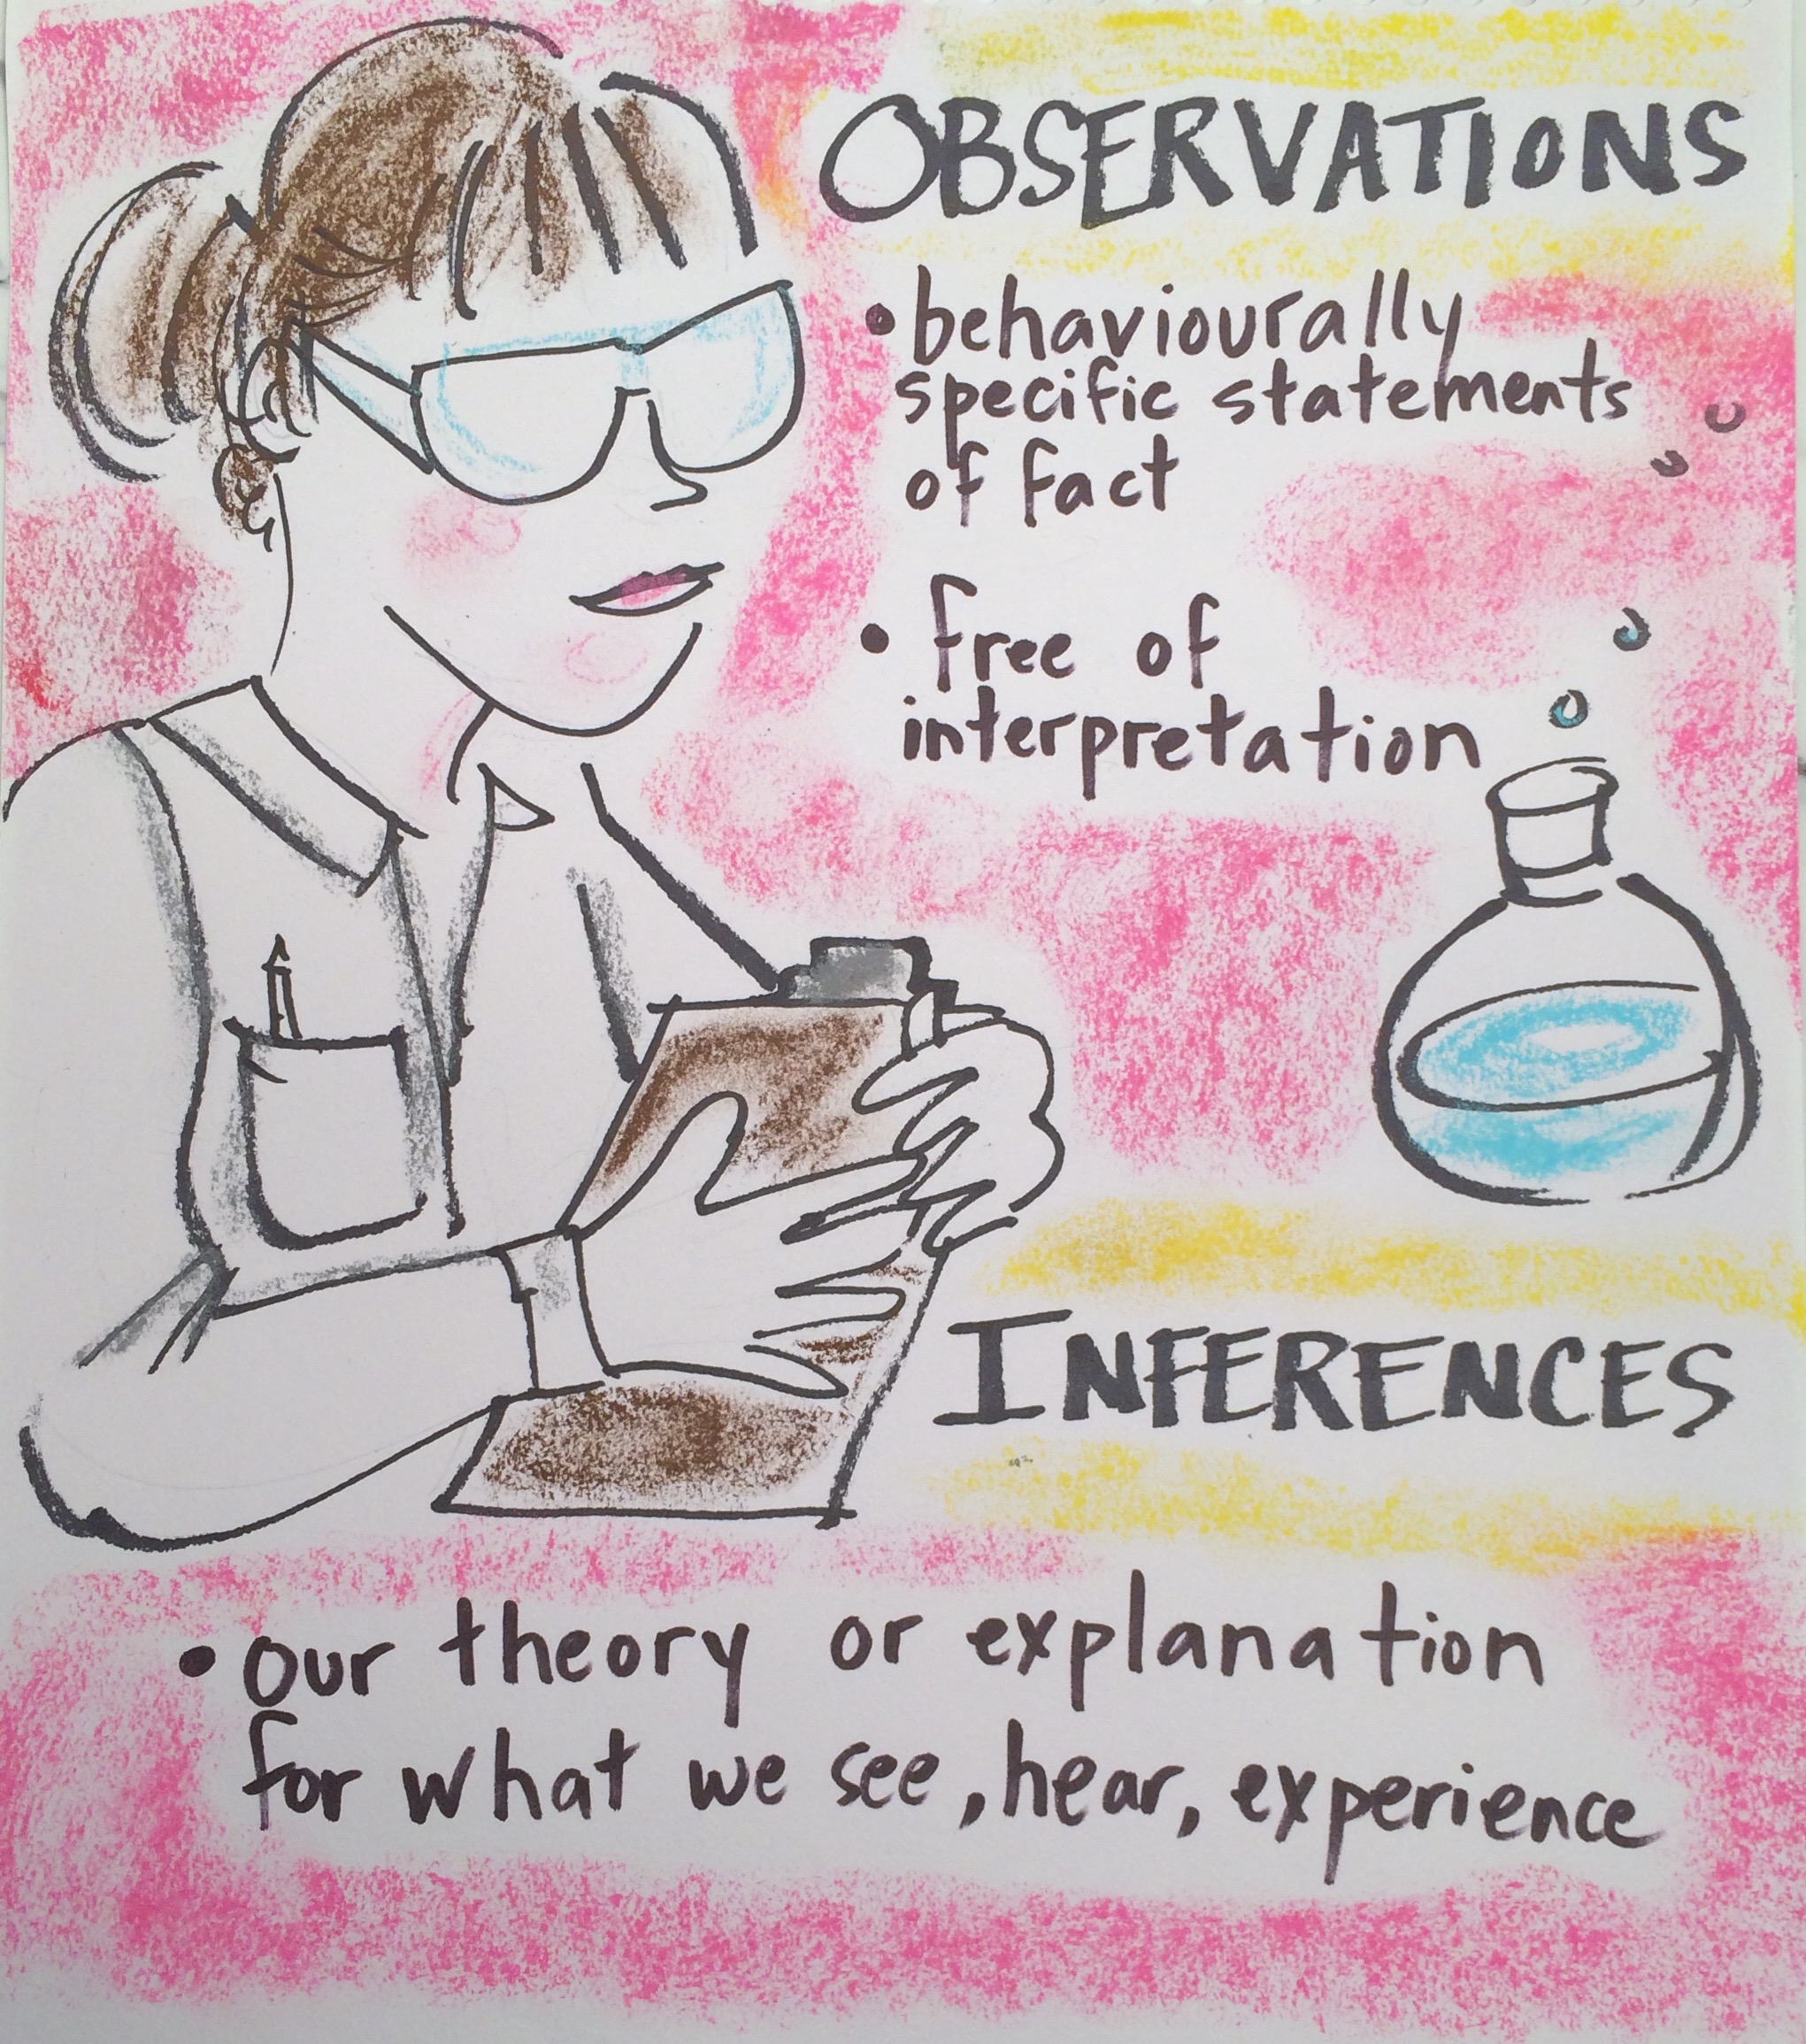 OBSERVATIONS
• behaviourally
specific statements
of fact
• free of
interpretation
INFERENCES
• our theory or explanation
for what we see, hear, experience